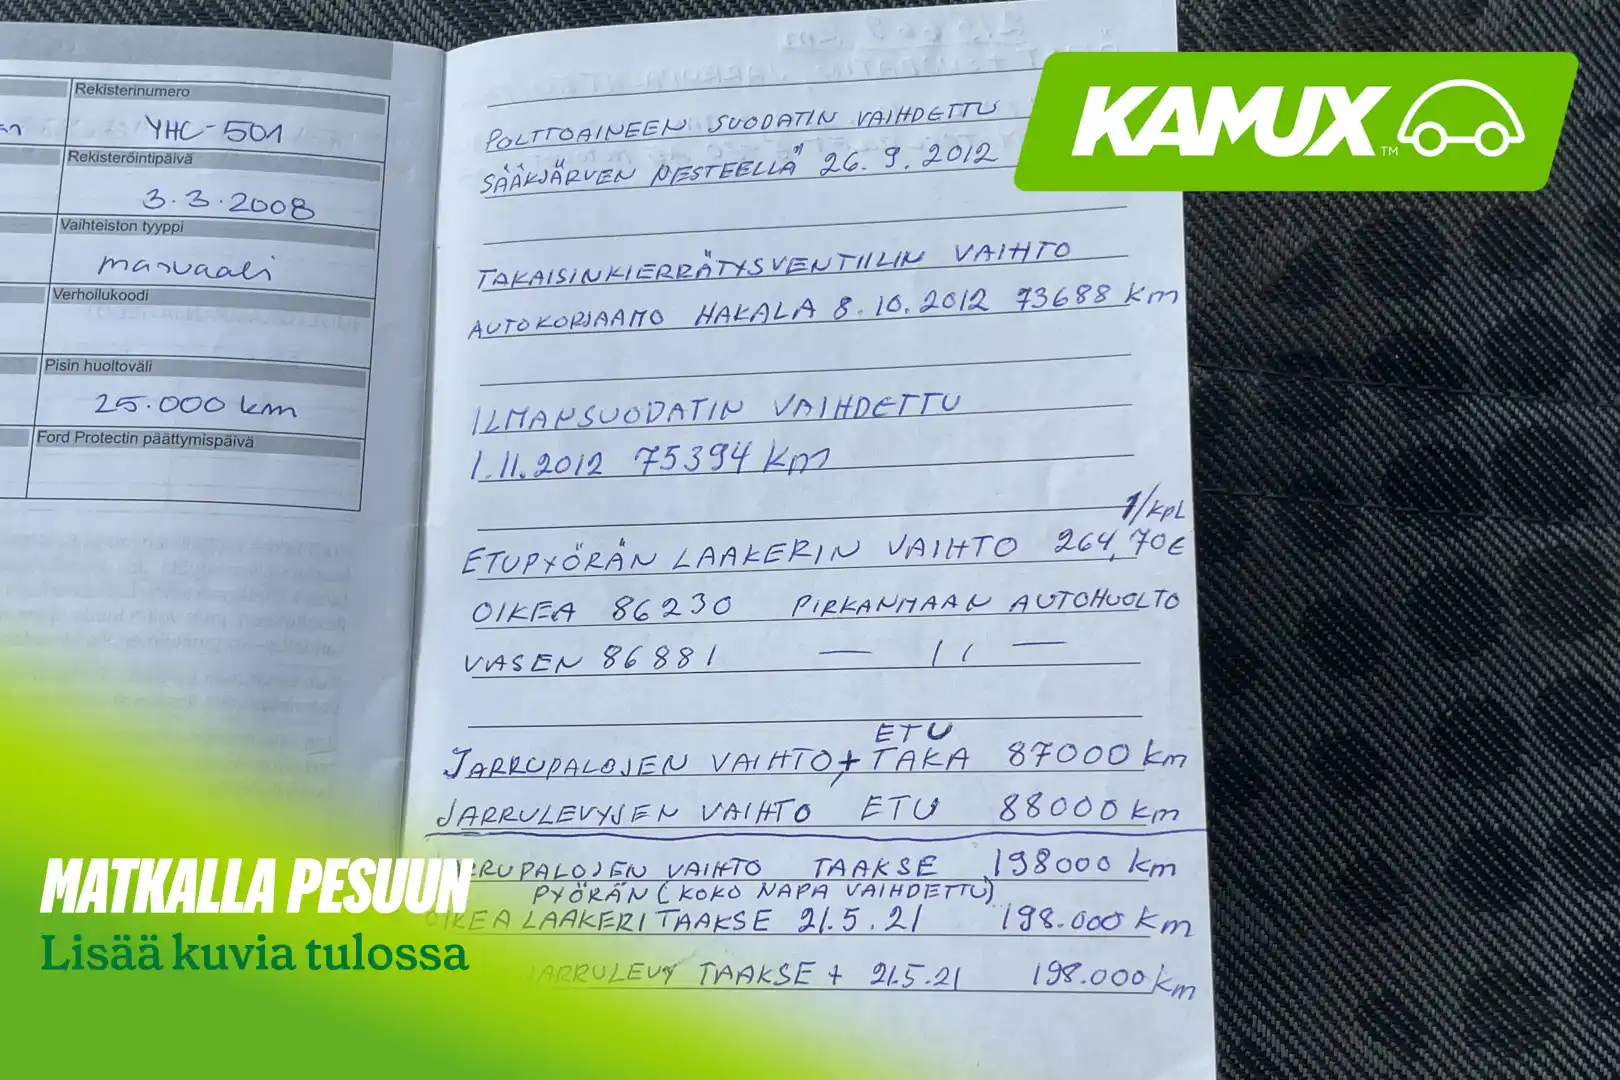 Rekisterinumero
YHC-501
Rekisteröintipäivä
3.3.2008
Vaihteiston tyyppi
manuaali
Verhoilukoodi
Pisin huoltoväli
25.000 km
Ford Protectin päättymispäivä
POLTTOAINEEN SUODATIN VAIHDETTU
SÄÄKJÄRVEN NESTEELLÄ" 26.9.2012
TAKAISINKIERRÄTYSVENTIILIN VAIHTO
AUTOKORJAAMO HAKALA 8.10.2012 73688 km
ILMANSUODATIN VAIHDETTU
1.11.2012 75394 km
1/kpl
ETUPYÖRÄN LAAKERIN VAIHTO 264,70€
OIKEA 86230 PIRKANMAAN AUTOHUOLTO
VASEN 86881 — 11 —
ETU
JARRUPALOJEN VAIHTO + TAKA 87000 km
JARRULEVYJEN VAIHTO ETU 88000 km
RUPALOJEN VAIHTO TAAKSE 198000 km
PYÖRÄN (KOKO NAPA VAIHDETTU)
OIKEA LAAKERI TAAKSE 21.5.21 198.000 km
JARRULEVY TAAKSE + 21.5.21 198.000 km
KAMUX™
MATKALLA PESUUN
Lisää kuvia tulossa